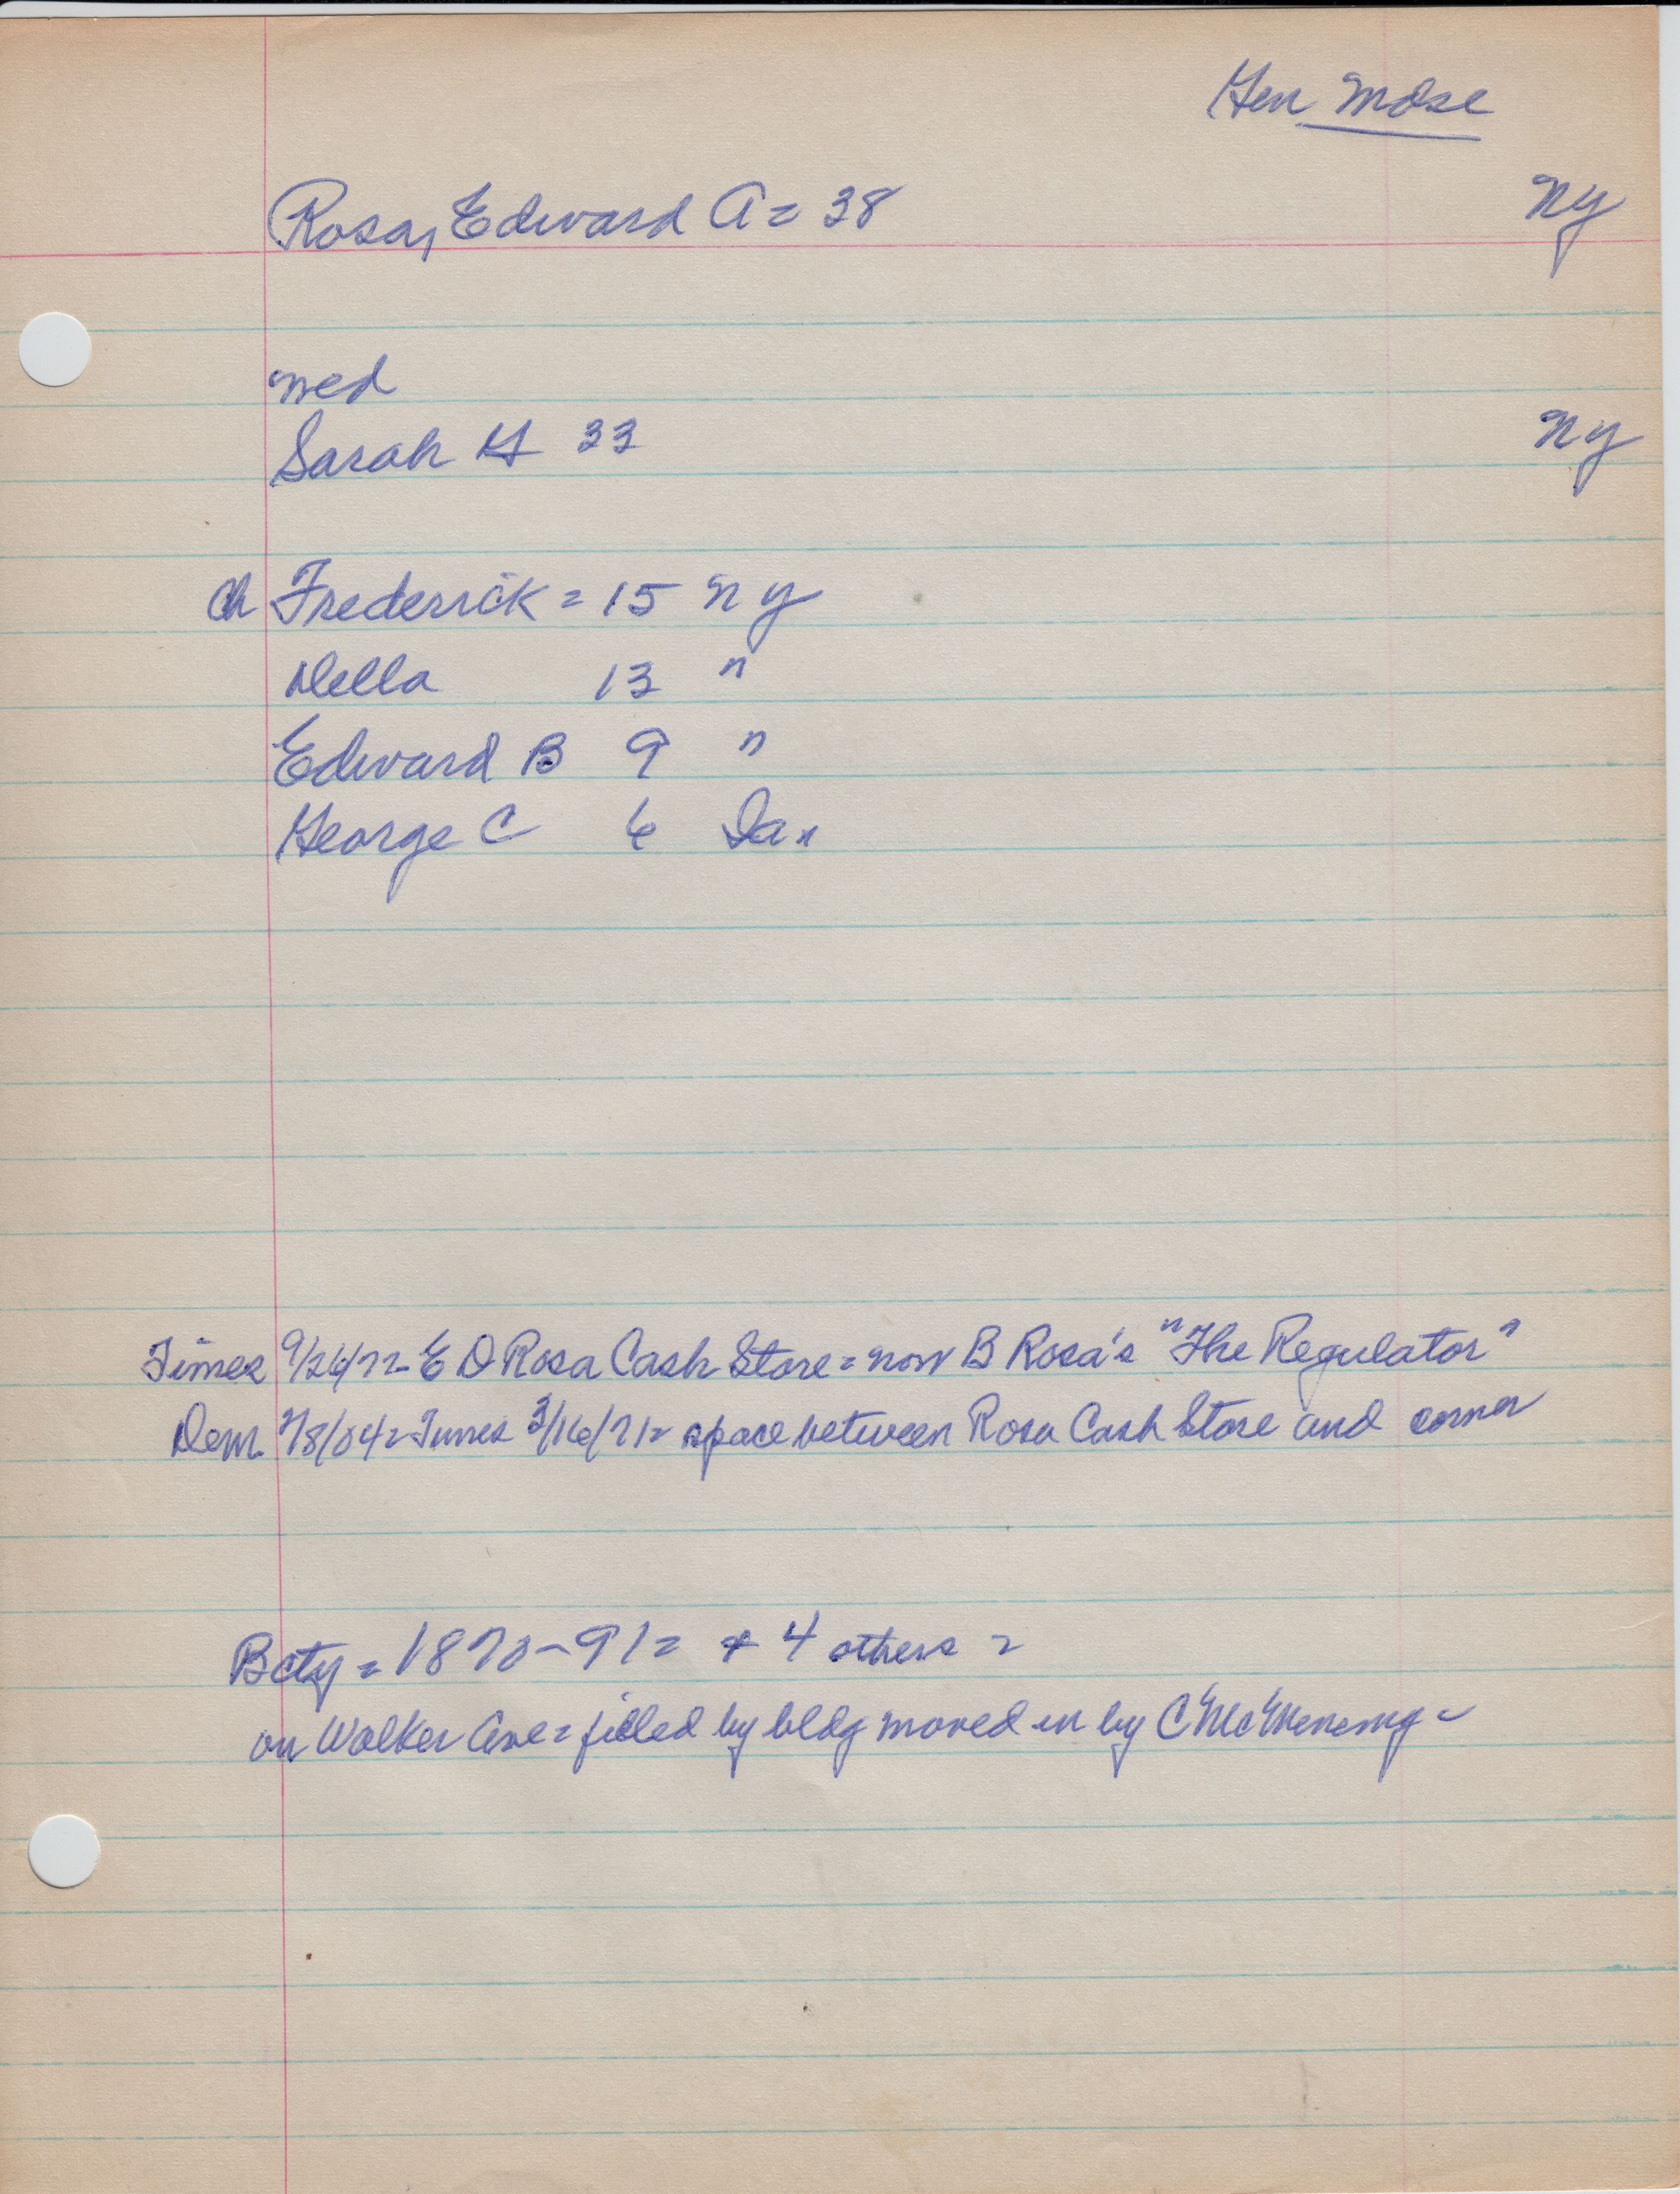 Gen Mdse
Rosa, Edward A = 38 NY
med
Sarah H 33 NY
Ch Frederick = 15 NY
Della 13 "
Edward B 9 "
George C 6 Ia.
Times 9/26/72 - E D Rosa Cash Store = now B Rosa's "The Regulator"
Dem. 7/8/04 = Times 3/16/71 = space between Rosa Cash Store and corner
Bcty = 1870 - 91 = + 4 others =
on Walker Ave = filled by bldg moved in by C McMenemy -